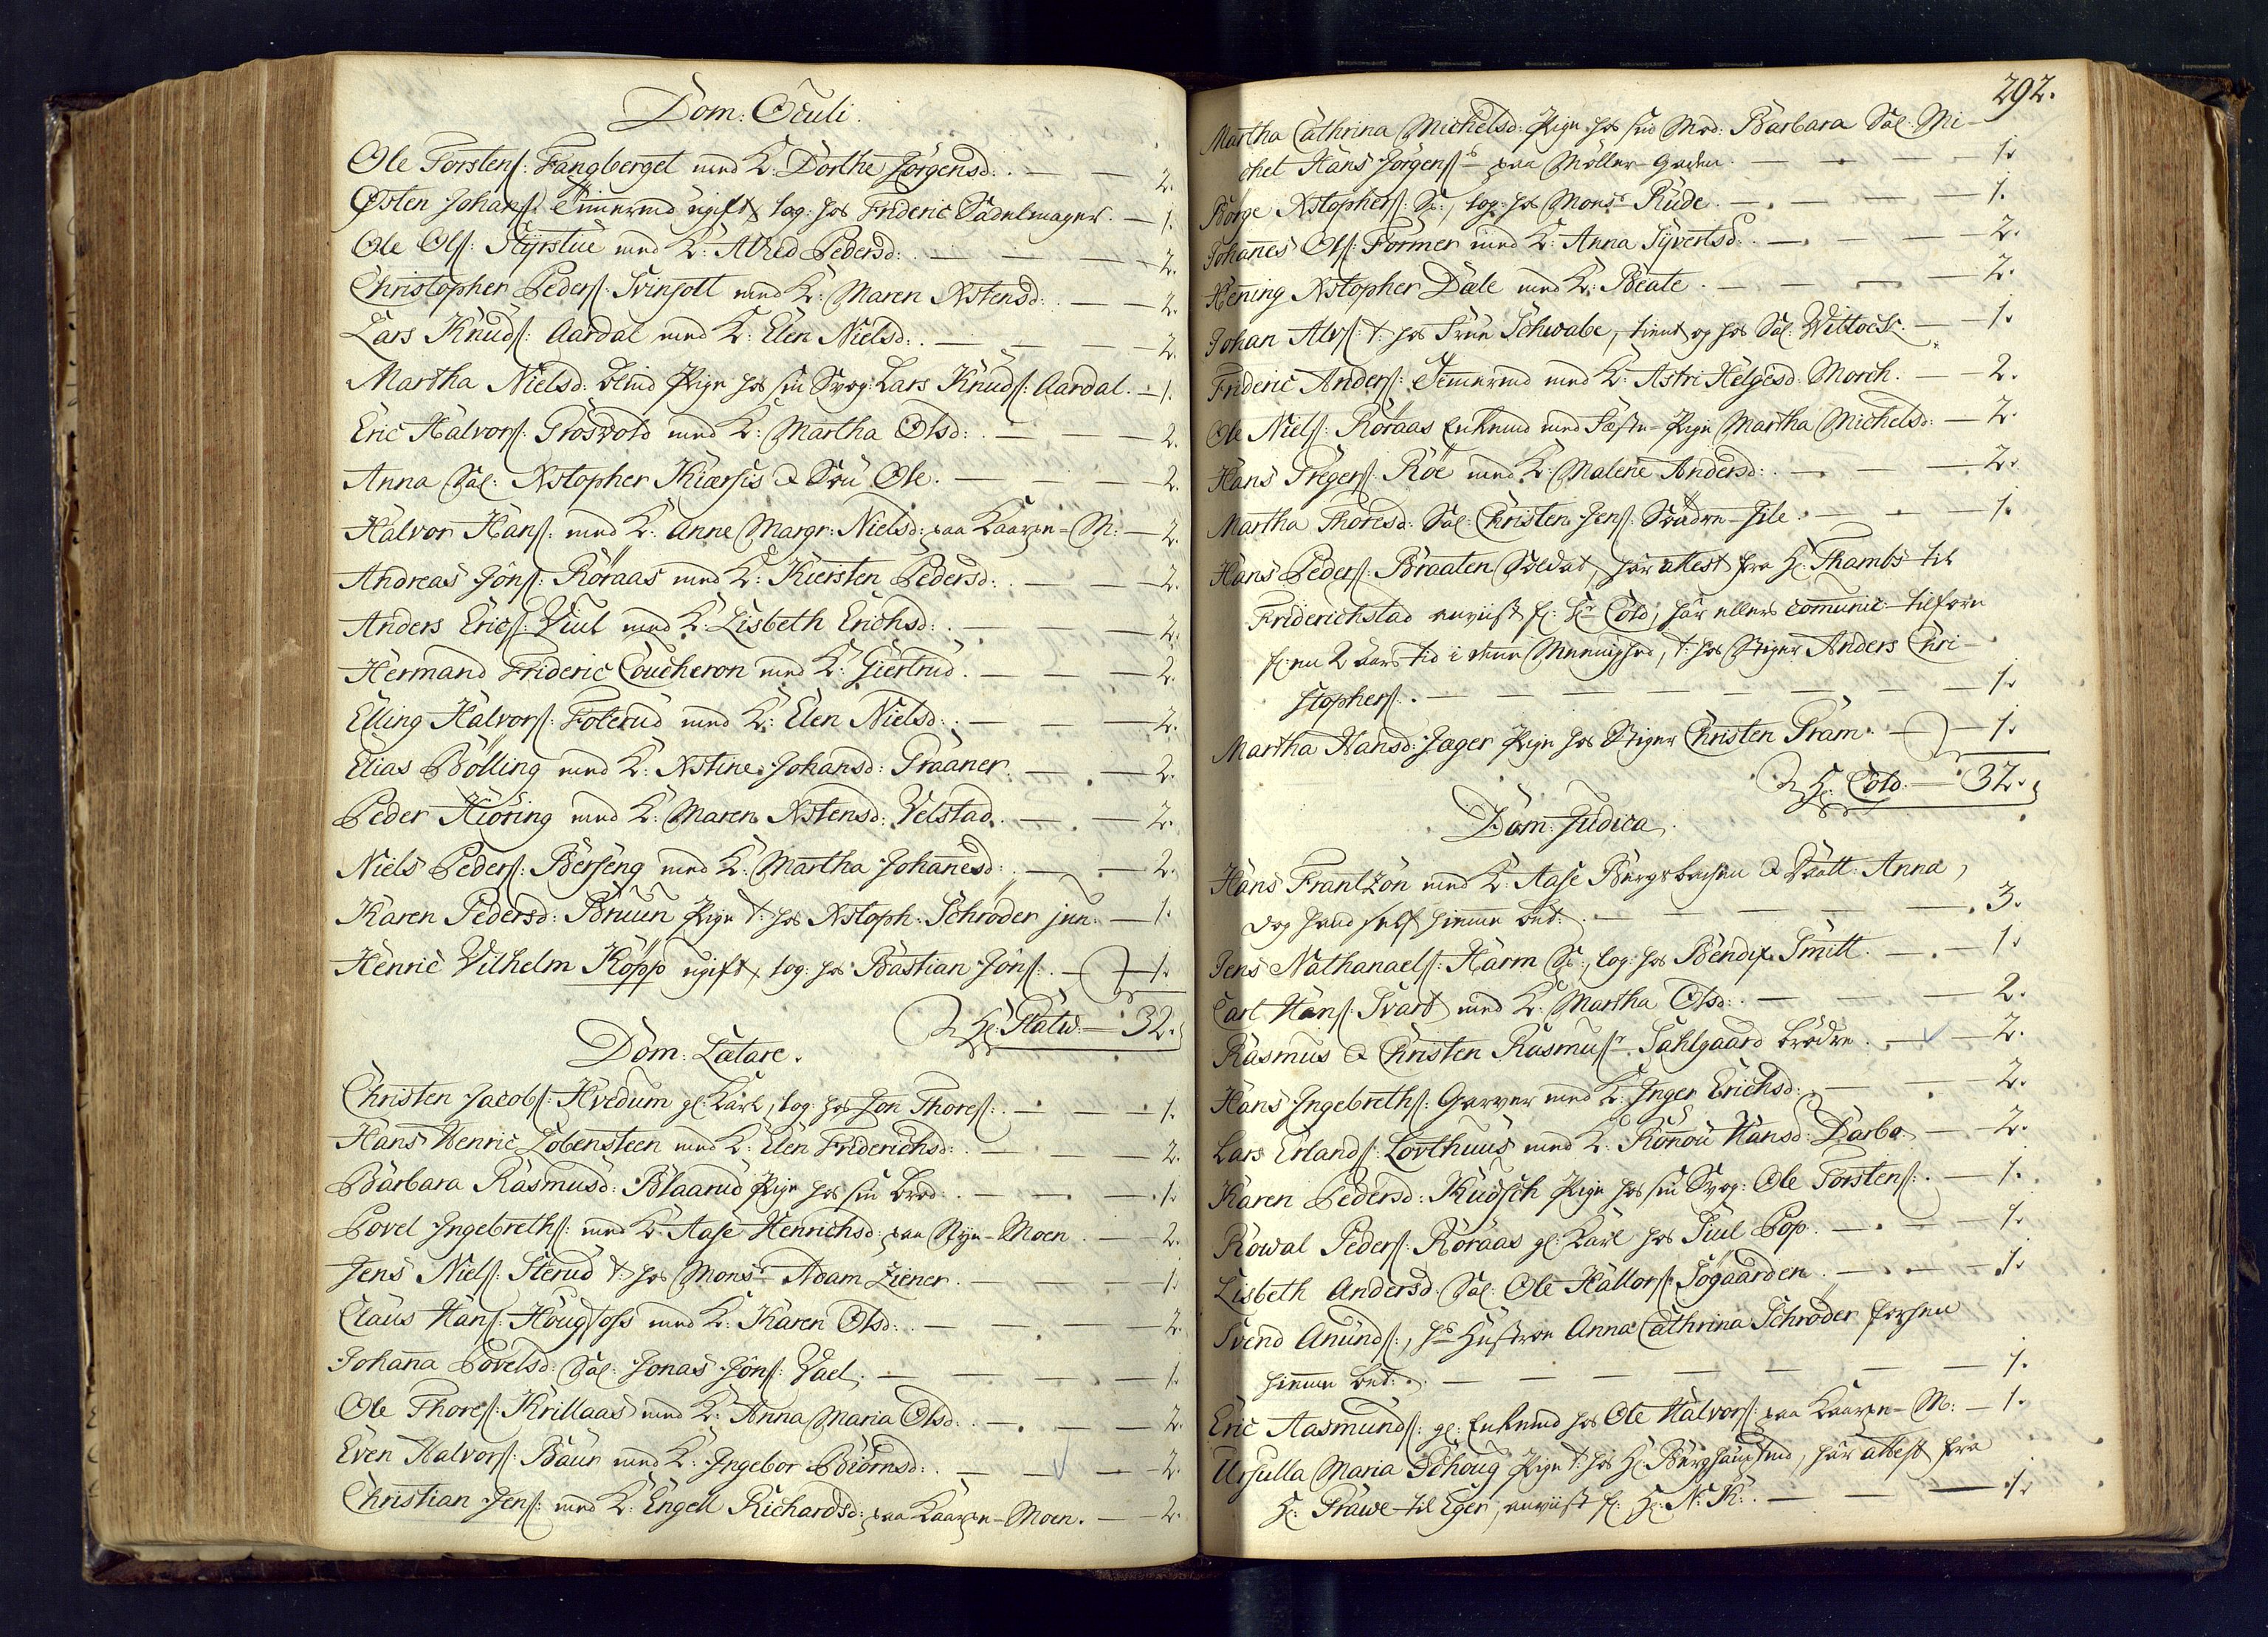 Dom: Oculi.
Ole Torstens: Fangberget med K: Dorthe Jörgensd: 2.
Østen Johans: Timermd ugift, log: hos Frideric Sadelmager. 1.
Ole Ols: Styrstue med K: Alhed Pedersd: 2.
Christopher Peders: Svinsott med K: Maren Xstensd: 2.
Lars Knuds: Aardal med K: Elen Nielsd: 2.
Martha Nielsd: blind Pige hos sin Svog: Lars Knuds: Aardal. 1.
Eric Halvors: Grosvold med K: Martha Olsd: 2.
Anna Sal: Xstopher Kiærsis & Sön Ole. 2.
Halvor Hans: med K: Anne Margr: Nielsd: paa Kaarpe-M: 2.
Andreas Jöns: Röraas med K: Kiersten Pedersd: 2.
Anders Erics: Viul med K: Lisbeth Erichsd: 2.
Hermand Frideric Coucheron med K: Giertrud. 2.
Elling Halvors: Foterud med K: Elen Nielsd: 2.
Elias Bölling med K: Xstine Johansd: Graaner. 2.
Peder Hiöring med K: Maren Xstensd: Velstad. 2.
Niels Peders: Berseng med K: Martha Johanesd: 2.
Karen Pedersd: Bruun Pige t: hos Xstoph: Schröder jun: 1.
Henric Vilhelm Köpp ugift, log: hos Bastian Jöns: 1.
H: Statv: 32.
Dom: Lætare.
Christen Jacobs: Hvedum gl: Karl, log: hos Jon Thores: 1.
Hans Henric Lobensteen med K: Elen Friderichsd: 2.
Barbara Rasmusd: Blaarud Pige hos sin brod: 1.
Povel Ingebreths: med K: Aase Henrichsd: paa Nye-Moen. 2.
Jens Niels: Sterud t: hos Monsr Adam Ziener. 1.
Claus Hans: Hougfoss med K: Karen Olsd: 2.
Johanna Povelsd: Sal: Jonas Jöns: Vael. 1.
Ole Thores: Krillaas med K: Anna Maria Olsd: 2.
Even Halvors: Baur med K: Ingebor Biörnsd: 2.
Christian Jens: med K: Engell Richardsd: paa Kaarpe-Moen. 2.
292.
Martha Cathrina Michelsd: Pige hos sin Mod: Barbara Sal: Mi-
chel Hans Jörgens: paa Möller-Gaden. 1.
Börge Xstophers: Sv:, log: hos Monsr Rude. 1.
Johannes Ols: Former med K: Anna Syvertsd: 2.
Hening Xstopher Dæle med K: Beate. 2.
Johan Alvs: t: hos Frue Schwabe, tient og hos Sal: Wittock. 1.
Frideric Anders: Timermd med K: Astri Helgesd: Morch. 2.
Ole Niels: Röraas Enkemd med Fæste-Pige Martha Michelsd: 2.
Hans Gregers: Röe med K: Malene Andersd: 2.
Martha Thoresd: Sal: Christen Jens: Svadre-Jile. 1.
Hans Peders: Braaten Soldat, har attest fra H: Thambs til
Friderichstad anviist f: Hr Cold, har ellers comunic: tilforn
for en 2 aars tid i denne Menighed, t: hos Stiger Anders Chri-
stophers: 1.
Martha Hansd: Jæger Pige hos Stiger Christen Fram. 1.
H: Cold. 32.
Dom: Judica.
Hans Frantzön med K: Aase Burgsbachen & Datt: Anna,
dog hand self hiemme bet: 3.
Jens Nathanaels: Harm Sv:, log: hos Bendix Smitt. 1.
Carl Hans: Svart med K: Martha Olsd: 2.
Rasmus & Christen Rasmusr: Sahlgaard brödre. 2.
Hans Ingebreths: Garver med K: Inger Erichsd: 2.
Lars Erlands: Lovthuus med K: Ronnou Hansd: Darbo. 2.
Karen Pedersd: Kudsch Pige hos sin Svog: Ole Torstens: 1.
Rowal Peders: Röraas gl: Karl hos Siul Pop. 1.
Lisbeth Andersd: Sal: Ole Hallors: Søgaarden. 1.
Svend Anunds:, hs Hustroe Anna Cathrina Schröder forhen
hiemme bet: 1.
Eric Aasmunds: gl: Enkemd hos Ole Halvors: paa Kaarpe-M: 1.
Ursulla Maria Schoug Pige t: hos H: Berghauptmd, har attest fra
H: Grawe til Eger, anviist f: H: N: K: 1.